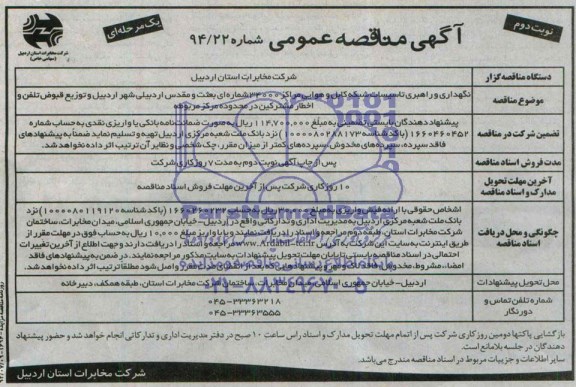 نوبت دوم
آگهی مناقصه عمومی شماره ۹۴/۲۲
یک مرحله‌ای
شرکت مخابرات استان اردبیل
(سهامی خاص)
دستگاه مناقصه گزار
شرکت مخابرات استان اردبیل
موضوع مناقصه
نگهداری و راهبری تاسیسات شبکه کابل و هوایی مراکز ۳۳۰۰۰ شماره‌ای بعثت و مقدس اردبیلی شهر اردبیل و توزیع قبوض تلفن و
اخطار مشترکین در محدوده مرکز مربوطه
تضمین شرکت در مناقصه
پیشنهاد دهندگان بایستی تضمینی به مبلغ ۱۱۴,۷۰۰,۰۰۰ ریال به صورت ضمانت نامه بانکی یا واریز نقدی به حساب شماره
۱۶۶۰۴۶۰۴۵۲ (با کد شناسه ۱۰۰۰۰۰۸۰۲۸۸۱۷۳) نزد بانک ملت شعبه مرکزی اردبیل تهیه و تسلیم نماید ضمناً به پیشنهادهای
فاقد سپرده، سپرده‌های مخدوش، سپرده‌های کمتر از میزان مقرر، چک شخصی و نظایر آن ترتیب اثر داده نخواهد شد.
مدت فروش اسناد مناقصه
پس از چاپ آگهی نوبت دوم به مدت ۷ روز کاری شرکت
آخرین مهلت تحویل
مدارک و اسناد مناقصه
۱۰ روز کاری شرکت پس از آخرین مهلت فروش اسناد مناقصه
چگونگی و محل دریافت
اسناد مناقصه
اشخاص حقوقی با ارائه فیش واریزی به مبلغ ریال به حساب ۱۶۶۰۴۶۰۲۳ (با کد شناسه ۱۰۰۰۰۰۸۰۱۱۹۱۲۰) نزد
بانک ملت شعبه مرکزی اردبیل به مدیریت اداری و تدارکاتی واقع در اردبیل – خیابان جمهوری اسلامی، میدان مخابرات، ساختمان
شرکت مخابرات استان، طبقه دوم مراجعه و اسناد را دریافت نمایند و یا با واریز مبلغ ۱۰,۰۰۰ ریال به حساب فوق در مهلت مقرر از
طریق اینترنت به سایت این شرکت به آدرس www.Ardabil-tc.ir مراجعه و اسناد را دریافت دارند و جهت اطلاع از آخرین تغییرات
احتمالی در اسناد مناقصه بایستی تا پایان مهلت تحویل پیشنهادات به سایت مذکور مراجعه نمایند. در ضمن به پیشنهادهای فاقد
امضاء، مشروط، مخدوش و پیشنهاداتی که بعد از انقضای مدت مقرر واصل شود مطلقا ترتیب اثر داده نخواهد شد.
محل تحویل پیشنهادات
اردبیل- خیابان جمهوری اسلامی، میدان مخابرات، ساختمان شرکت مخابرات استان، طبقه همکف، دبیرخانه
شماره تلفن تماس و
دورنگار
۰۴۵-۳۳۳۶۳۲۱۸
۰۴۵-۳۳۳۶۳۵۵۵
بازگشایی پاکتها دومین روز کاری شرکت پس از اتمام مهلت تحویل مدارک و اسناد راس ساعت ۱۰ صبح در دفتر مدیریت اداری و تدارکاتی انجام خواهد شد و حضور پیشنهاد
دهندگان در جلسه بلامانع است.
سایر اطلاعات و جزییات مربوط در اسناد مناقصه مندرج می‌باشد.
شرکت مخابرات استان اردبیل
ParsNamadData
۰۲۱-۸۸۳۴۹۶۷۰-۵